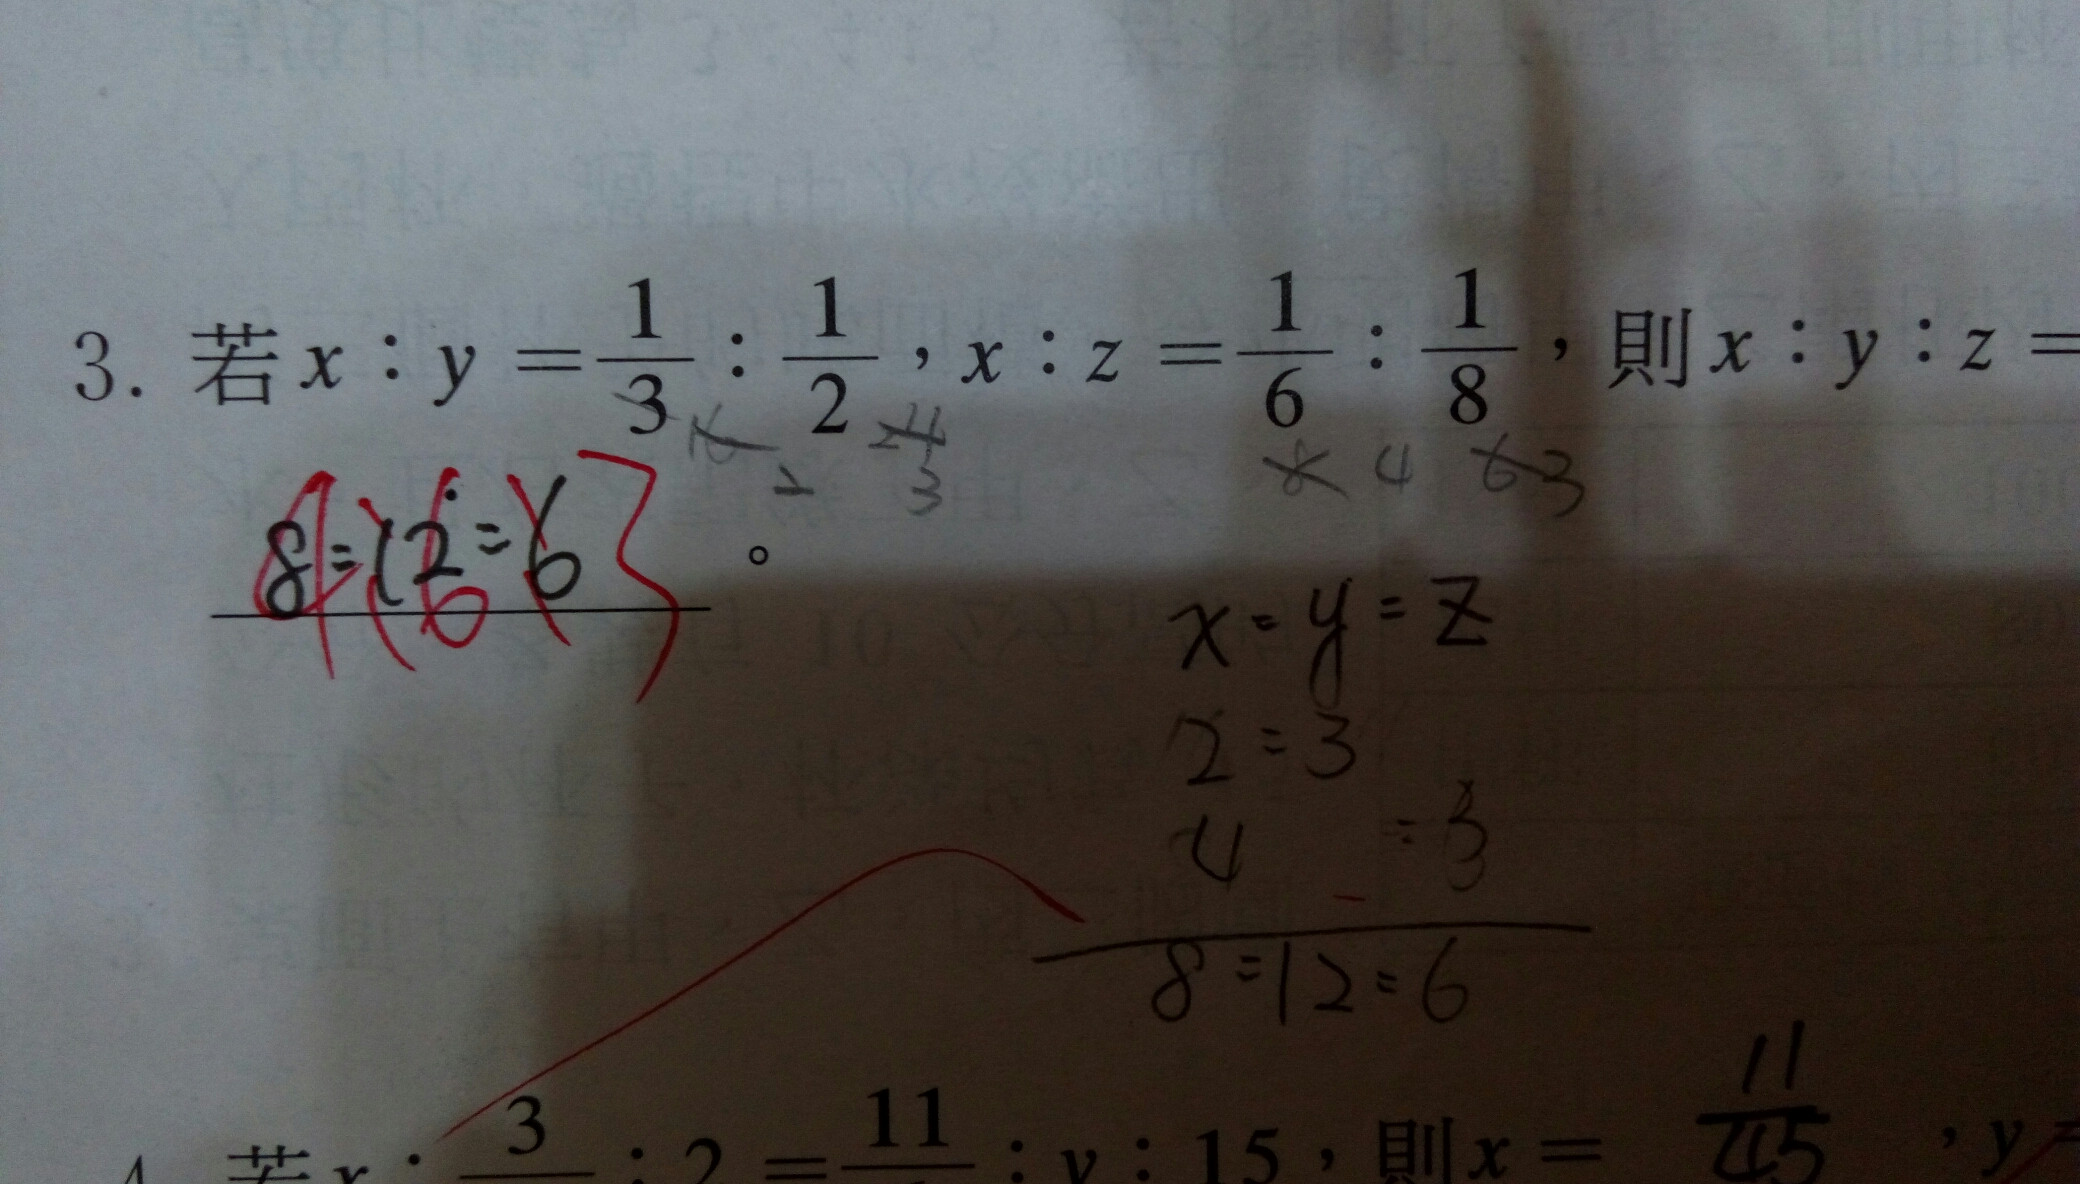 3. 若 x：y = 1/3：1/2，x：z = 1/6：1/8，則 x：y：z =
2 24 3 8 4 6 3
8=12=6 4 6 3 。
x=y=z
2=3
4 =3
8=12=6
4. 若 x：3：2 = 11：y：15，則 x = 11/45，y =